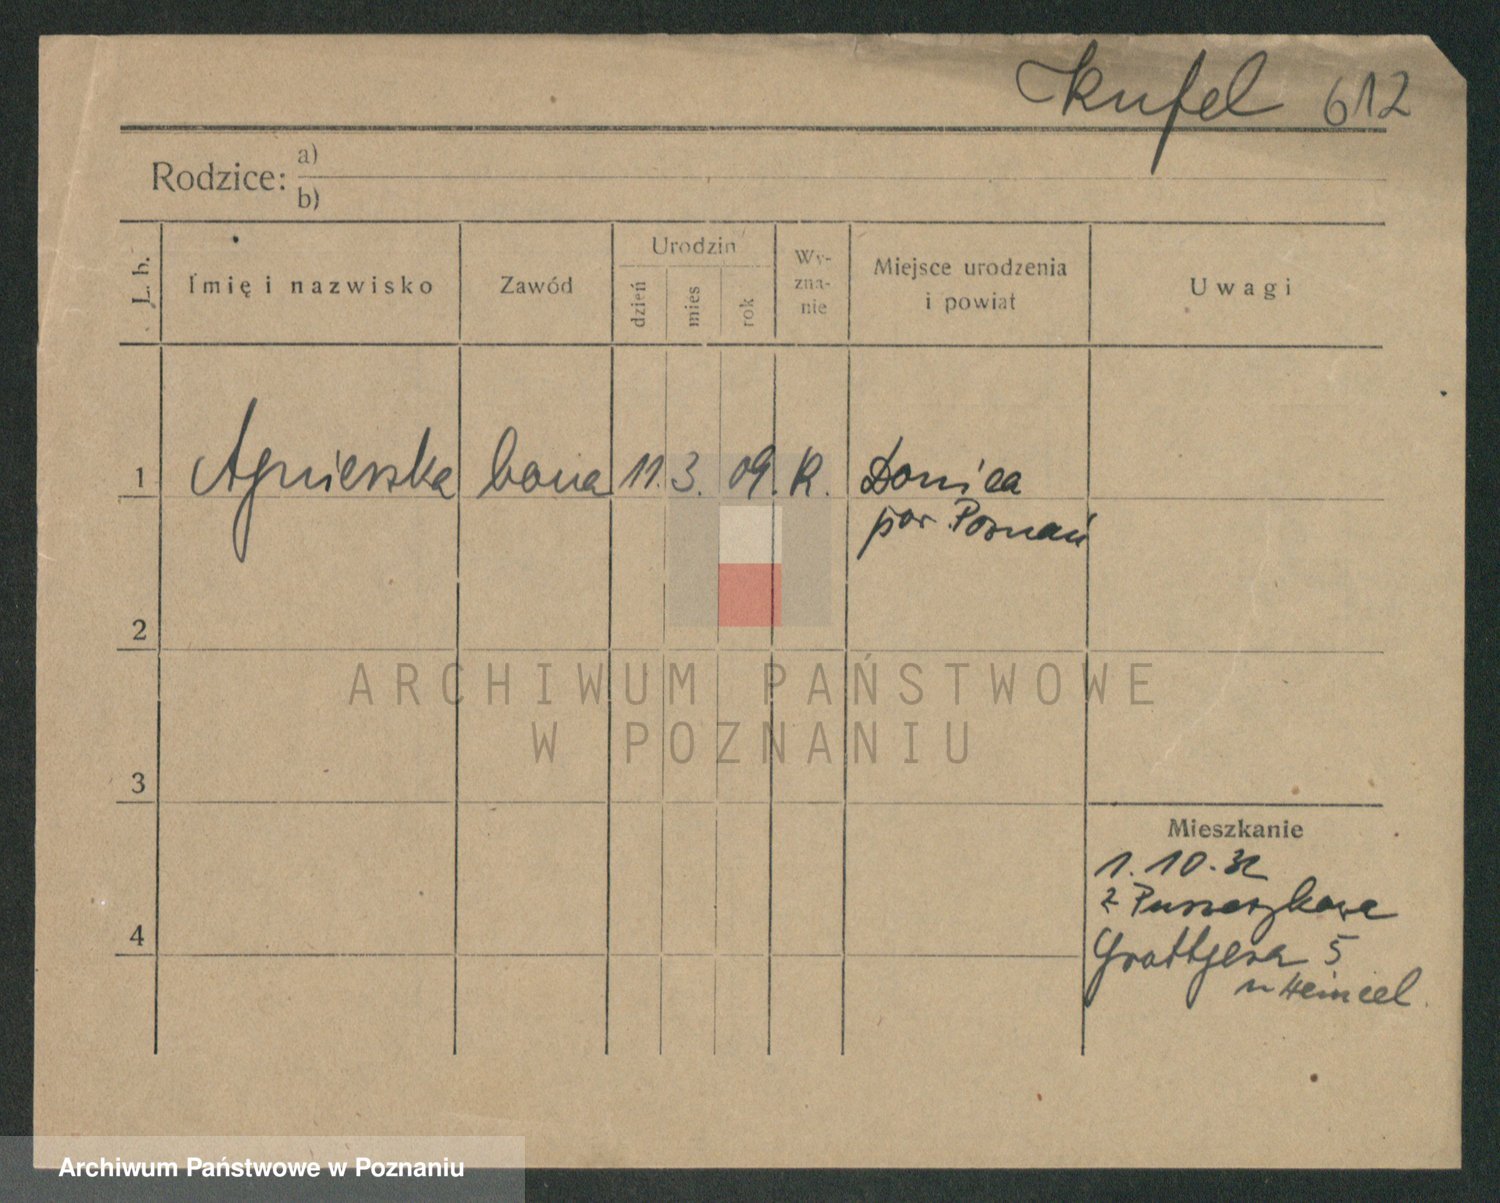 Kufel 612
Rodzice: a)
b)
L. b. Imię i nazwisko Zawód Urodzin dzień mies rok Wy-zna-nie Miejsce urodzenia i powiat Uwagi
1 Agnieszka bona 11. 3. 09. R.
pow. Poznań
2
ARCHIWUM PAŃSTWOWE
W POZNANIU
3
Mieszkanie
1.10.32
z Puszczykowa
4
Grottgera 5
u Heincel
Archiwum Państwowe w Poznaniu